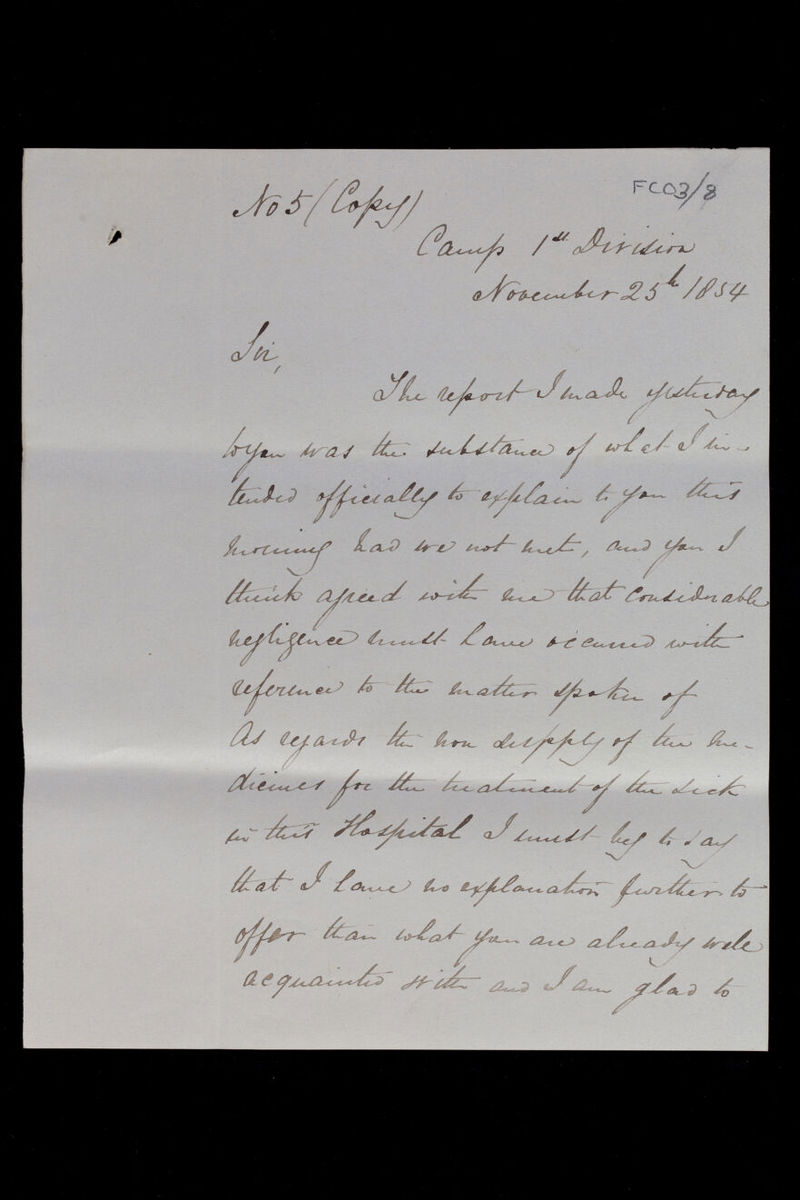 FC03/8
No 5 (Copy)
Camp 1st Division
November 25th 1854
Sir,
The report I made yesterday
to you was the substance of what I in-
tended officially to explain to you this
morning had we not met, and you I
think agreed with me that considerable
negligence must have occurred with
reference to the matter spoken of
As regards the non supply of the me-
dicines for the treatment of the sick
in this Hospital I must beg to say
that I have no explanation further to
offer than what you are already well
acquainted with and I am glad to